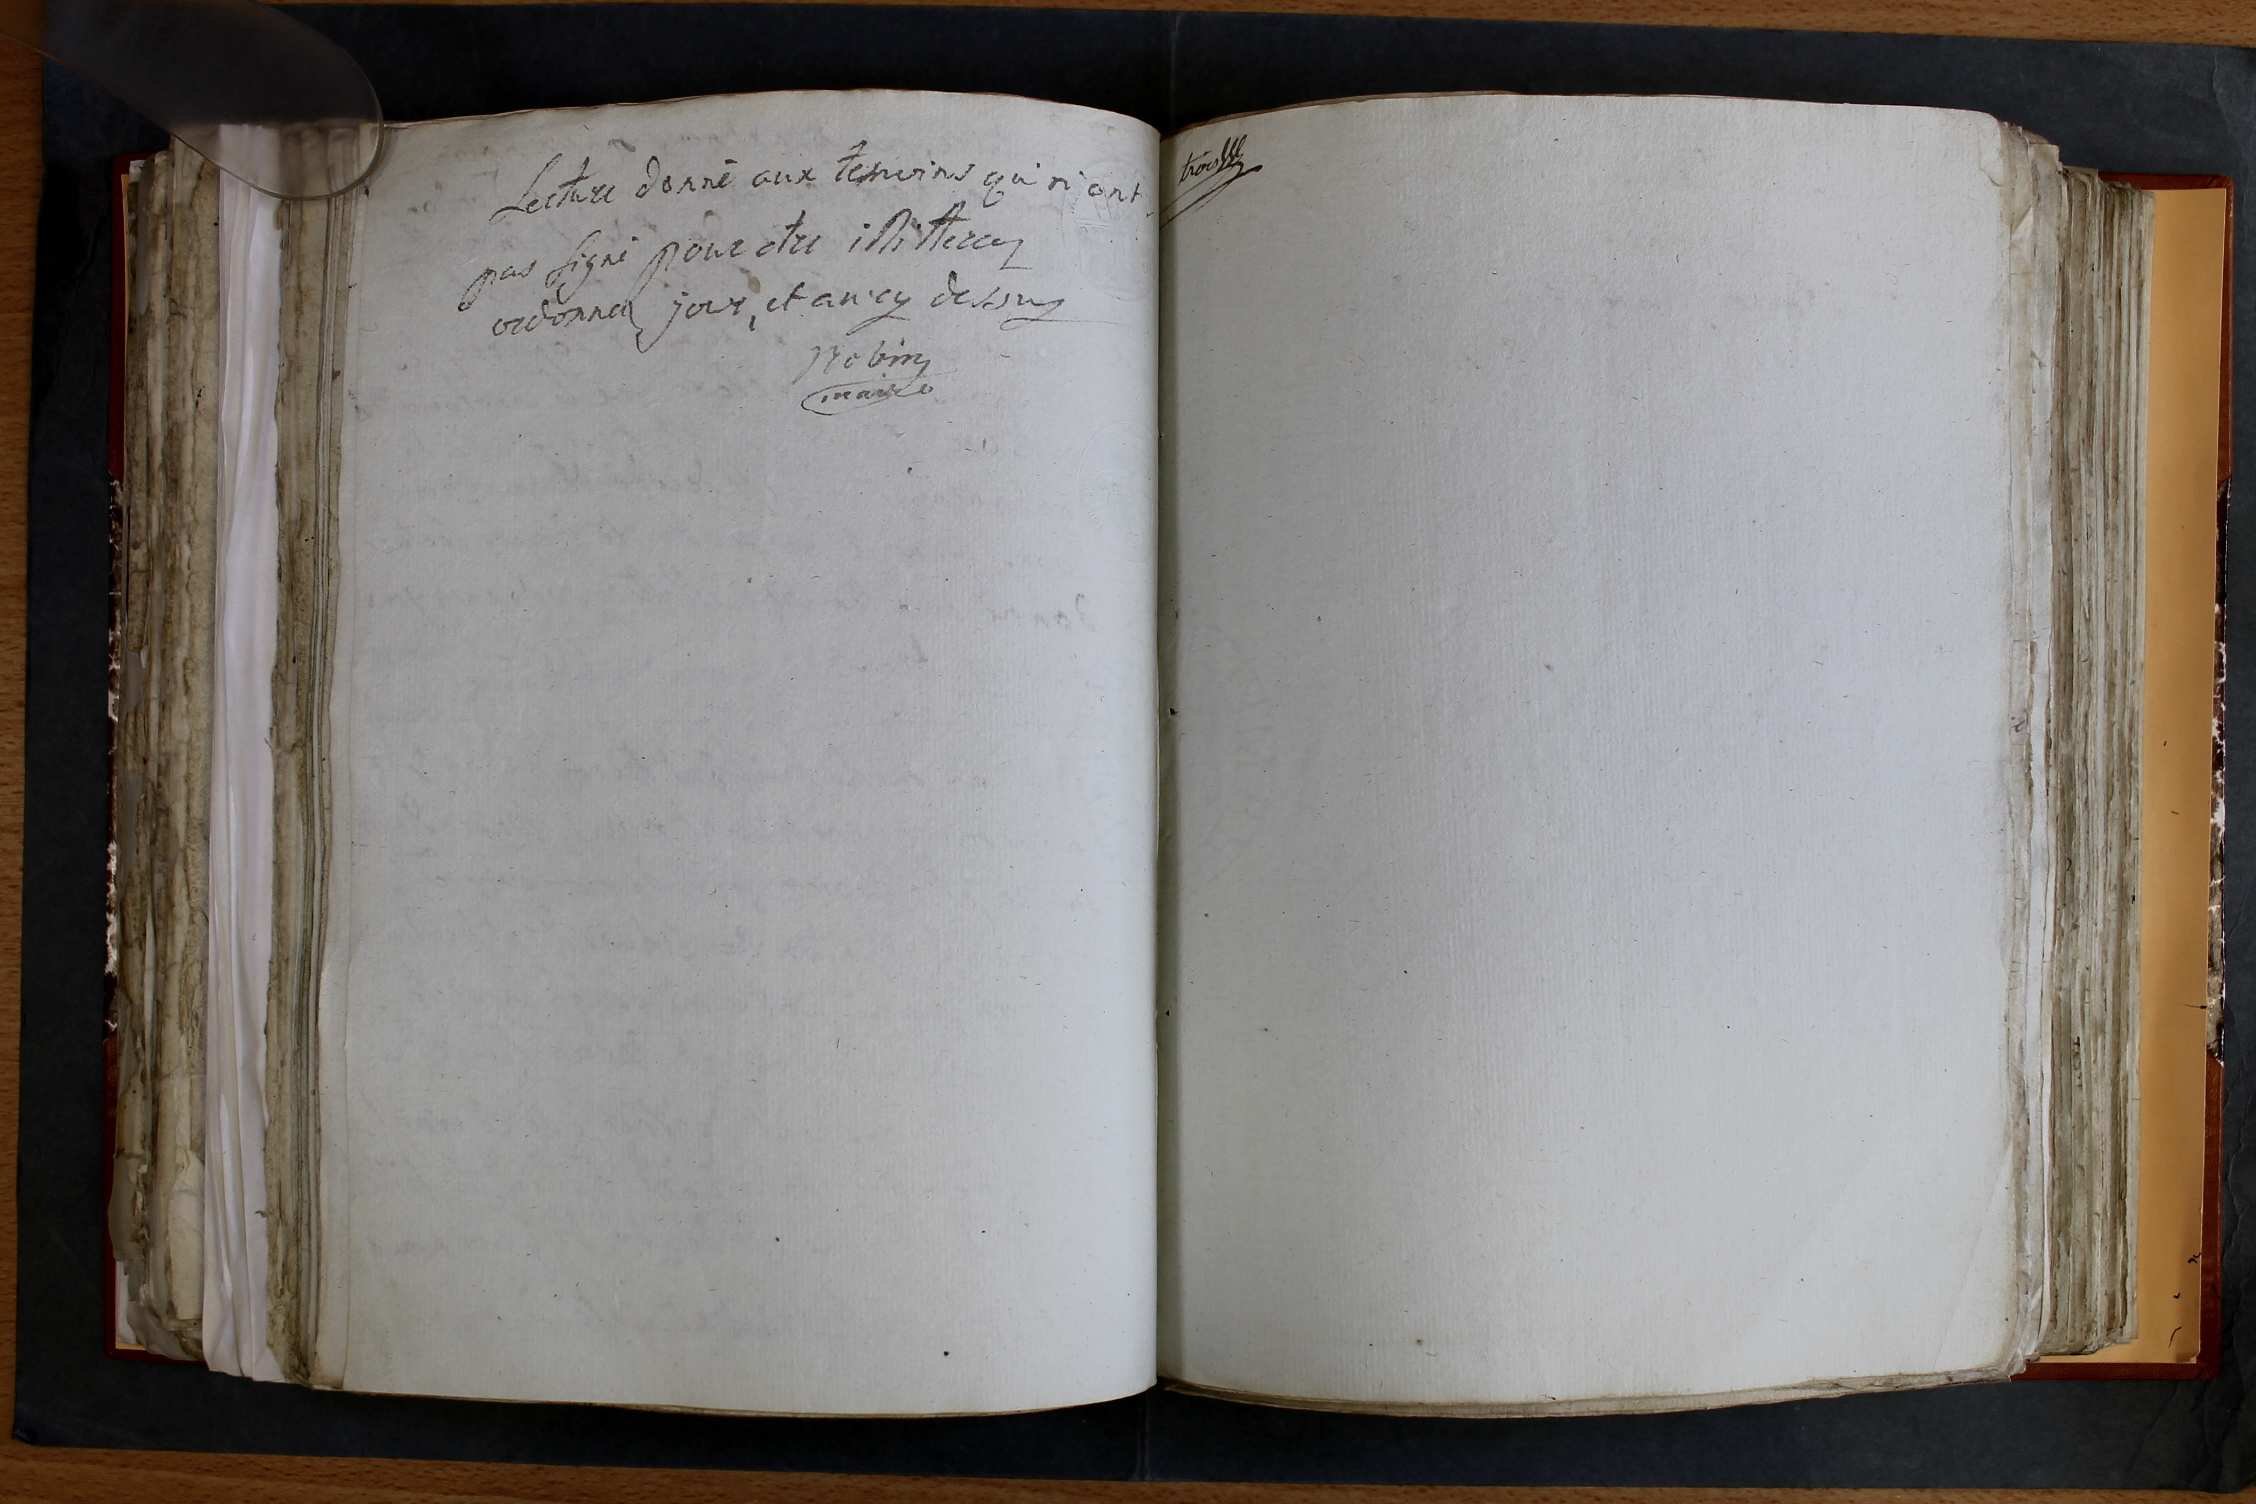 Lecture donné aux temoins qui n'ont
pas signé pour etre illitterez
ordonnez jour, et an cy dessus
Robin
maire
trois